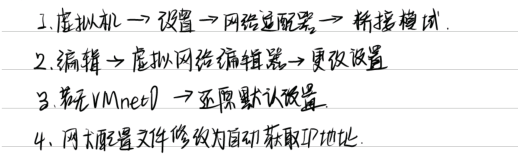 1.虚拟机→设置→网络适配器→桥接模式.
2.编辑→虚拟网络编辑器→更改设置
3.若无VMnet0→还原默认设置.
4、网卡配置文件修改为自动获取IP地址.